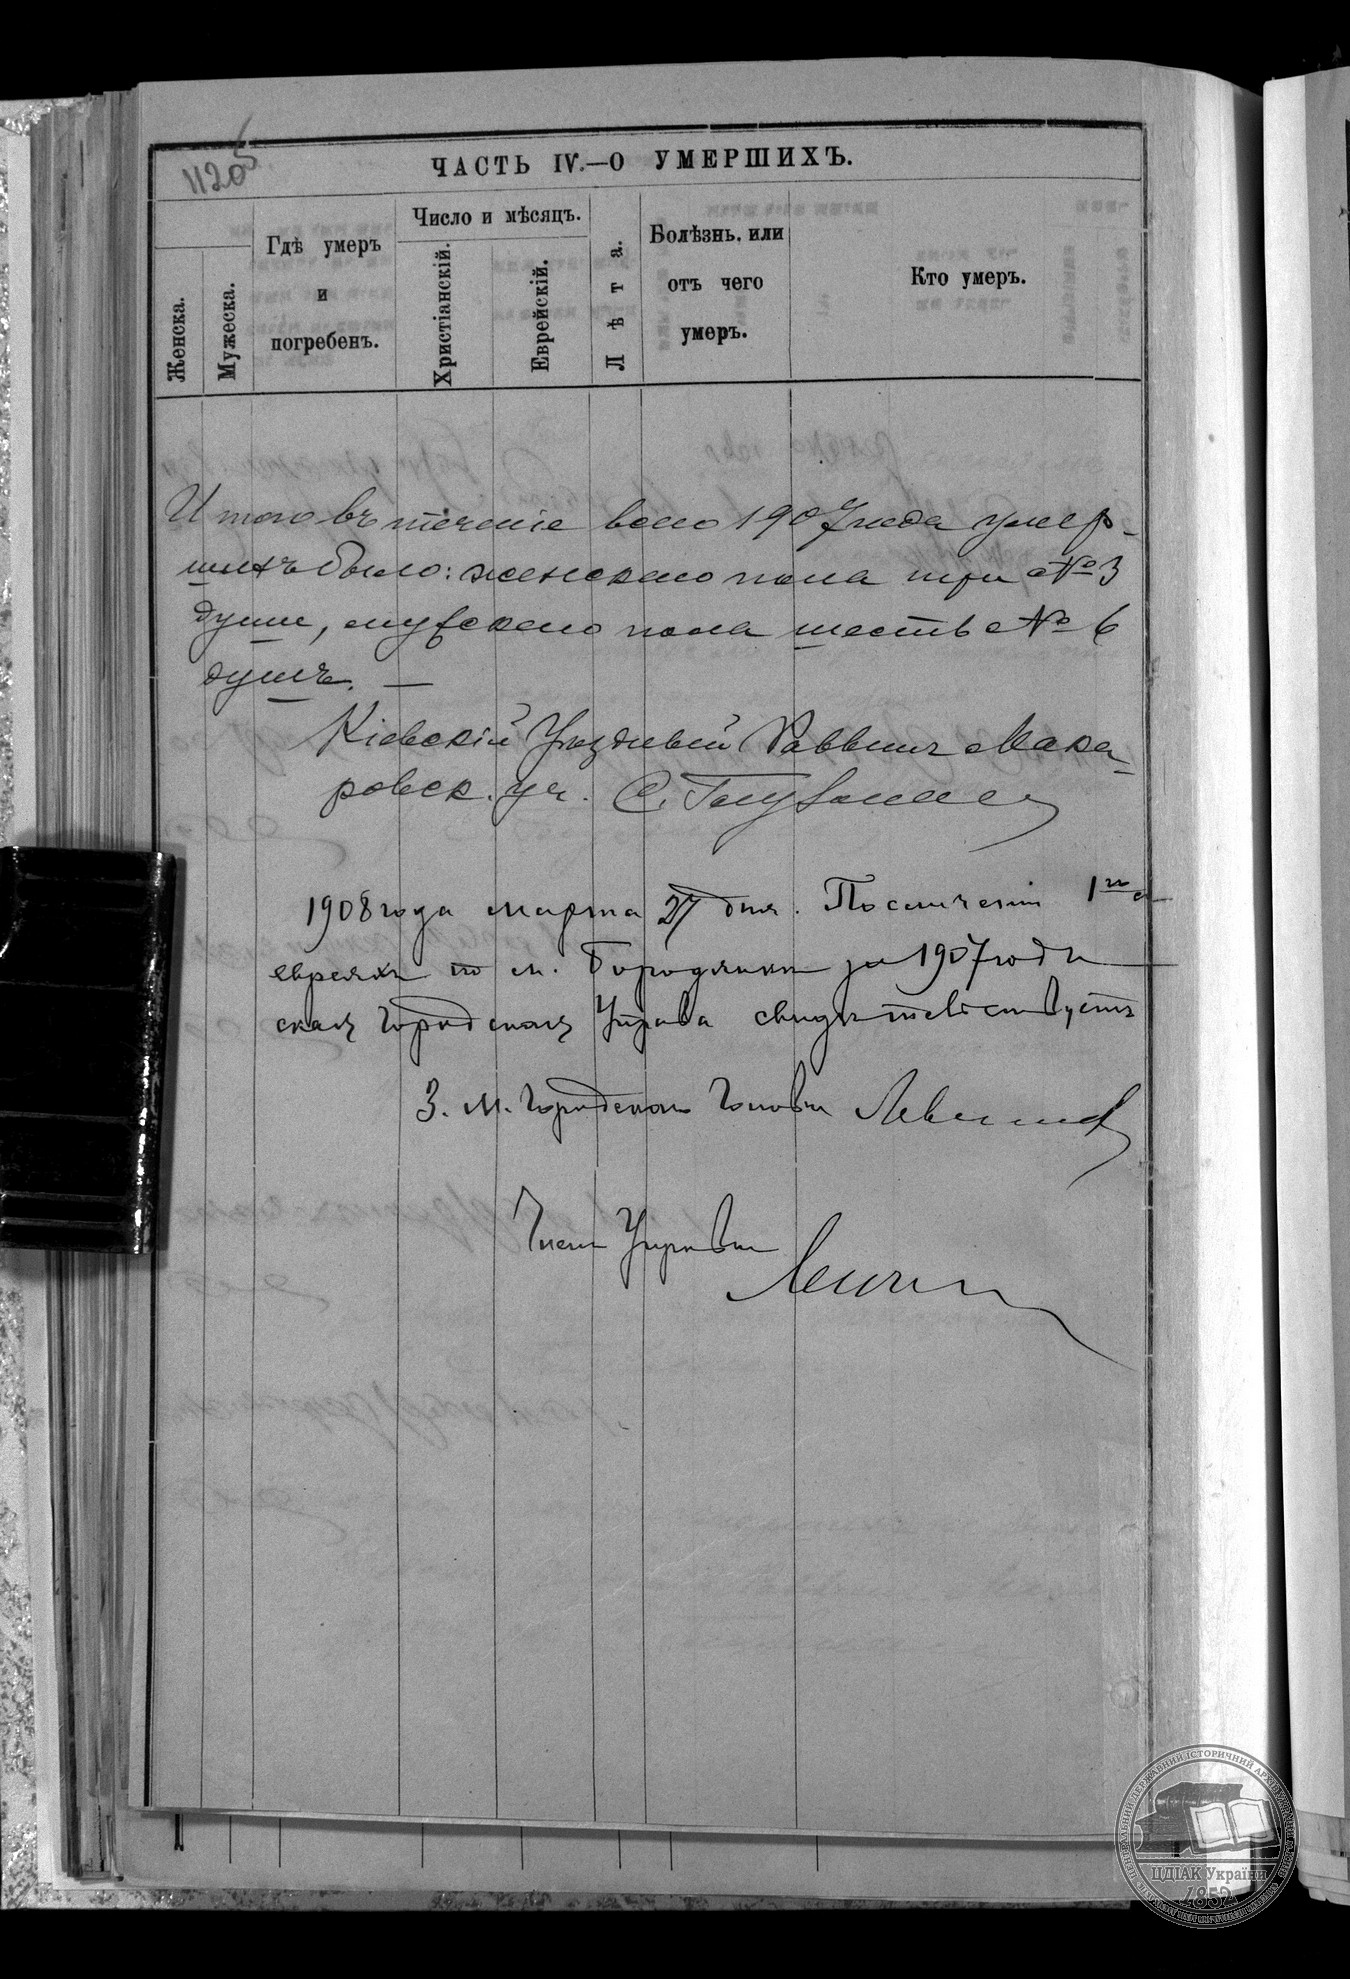 1120
ЧАСТЬ IV.—О УМЕРШИХЪ.
Женска.
Мужеска.
Гдѣ умеръ
и
погребенъ.
Число и мѣсяцъ.
Христіанскій.
Еврейскій.
Лѣта.
Болѣзнь. или
отъ чего
умеръ.
Кто умеръ.
Итого въ теченіе всего 1907 года умер-
шихъ было: женскаго пола три №3
души, мужскаго пола шесть №6
душъ. —
Кіевскій Уѣздный Раввинъ Мака-
ровск. уч. С.
1908 года марта 27 дня.
евреяхъ по м. Бородянкѣ за 1907 годъ
Управа свидѣтельствуетъ
З. м. Городскаго Головы
Членъ Управы
ЦДІАК України
1852